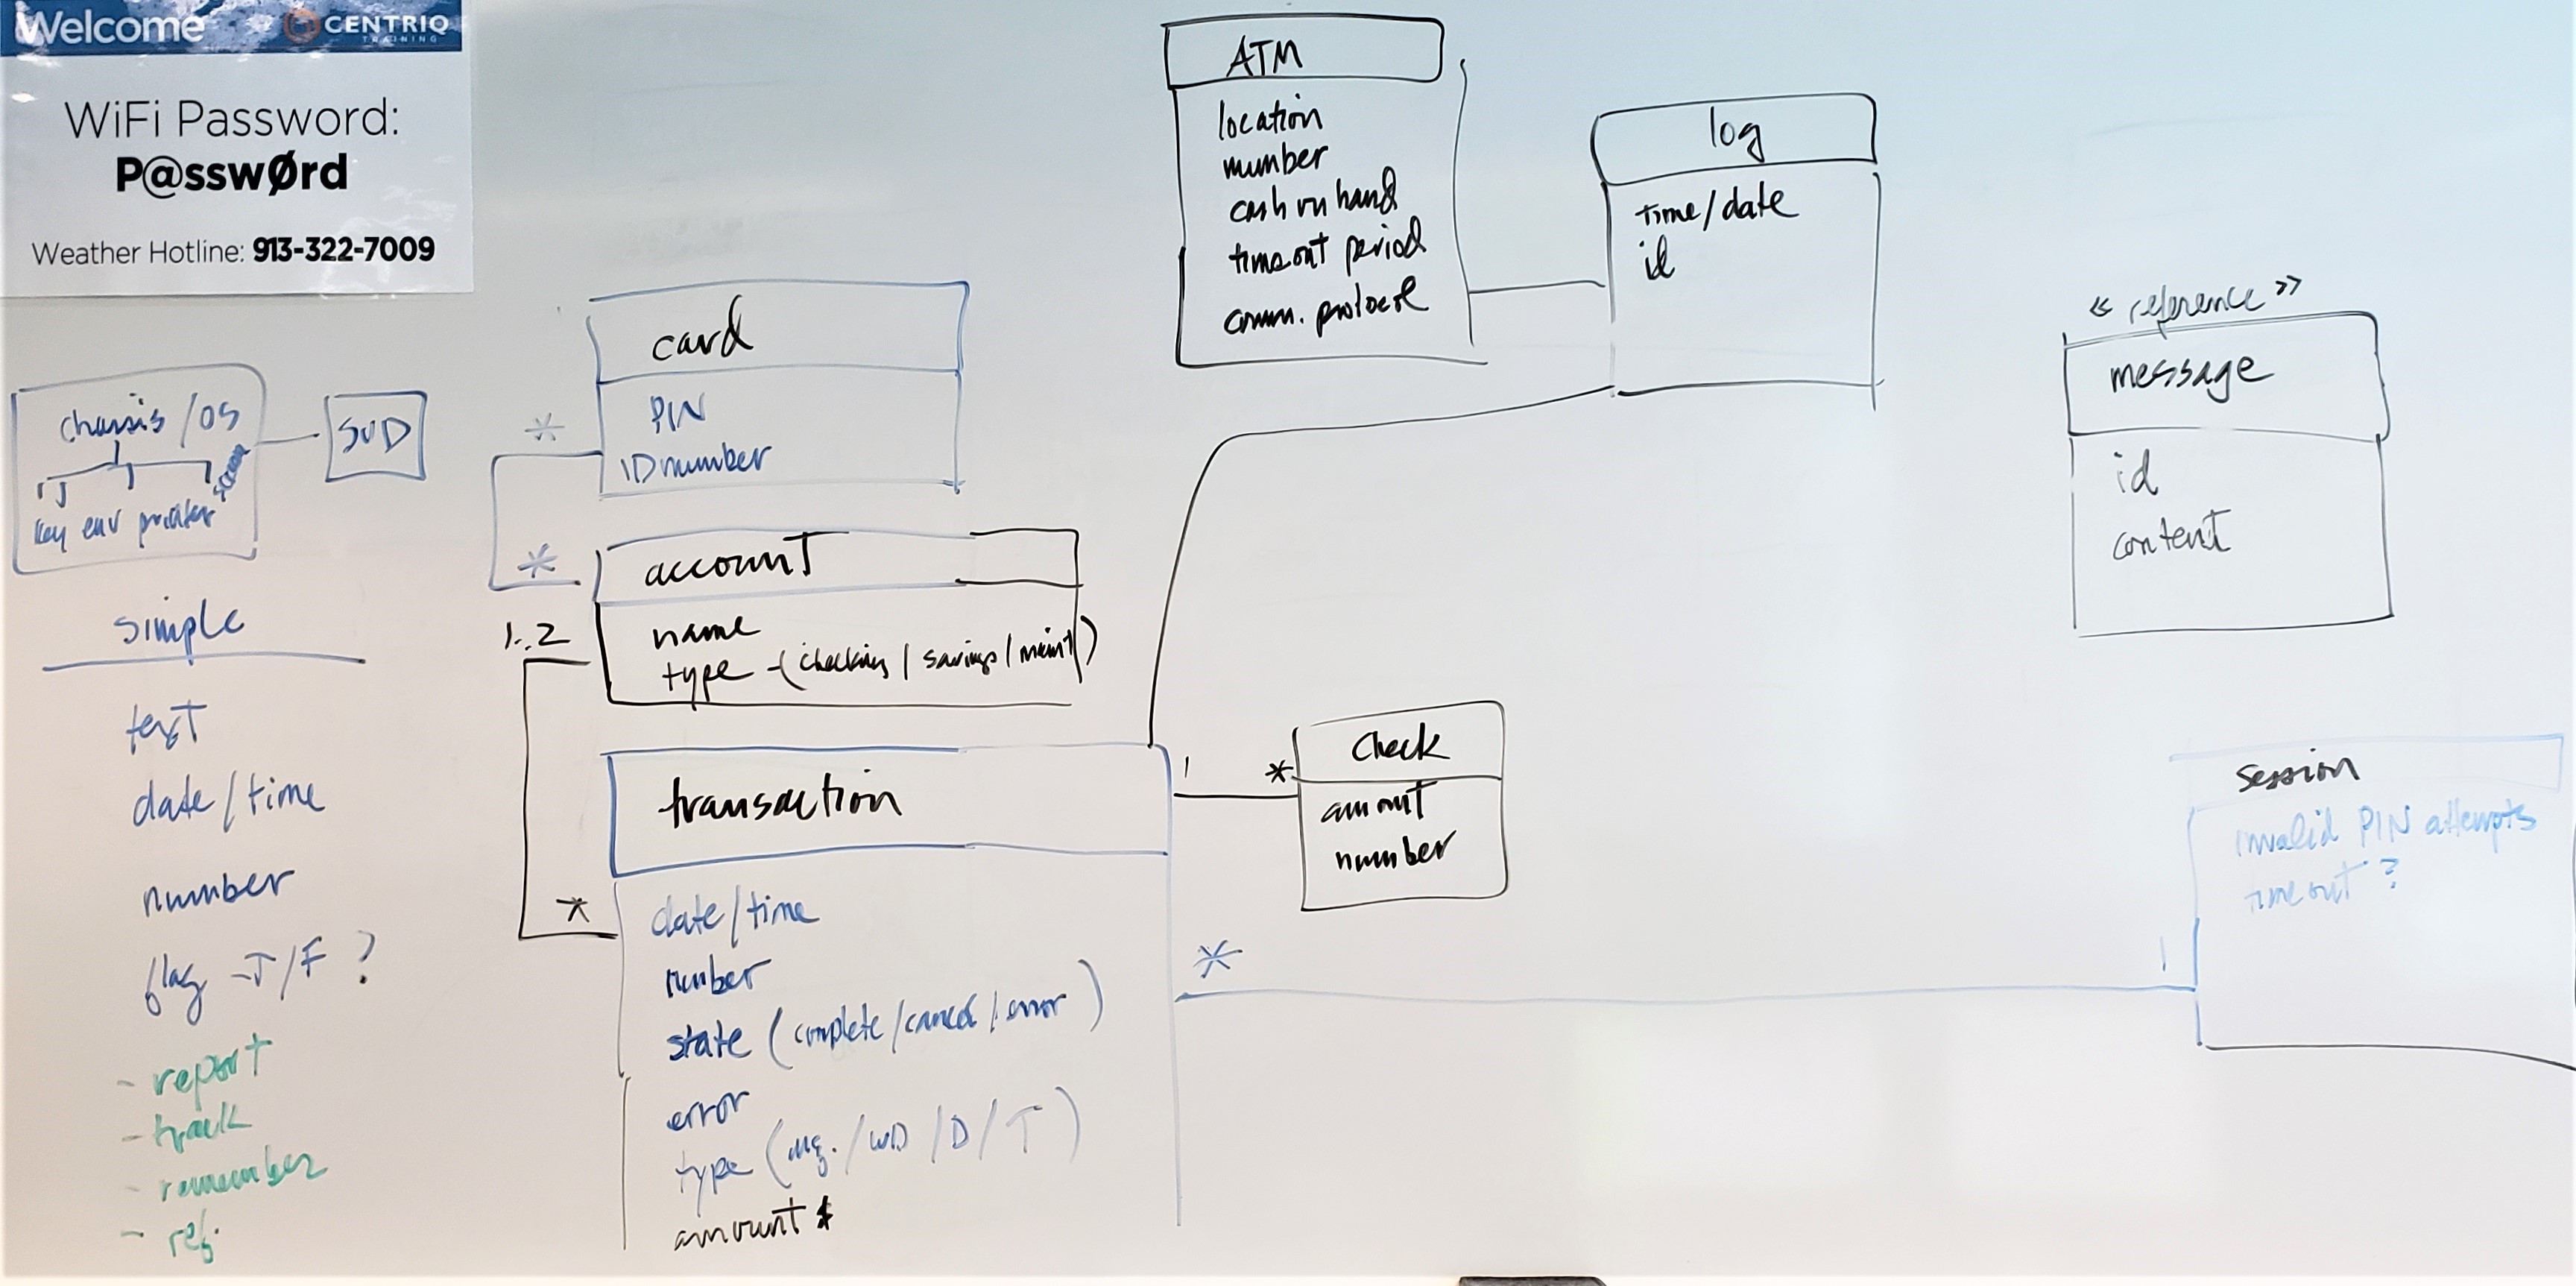 Welcome
CENTRIQ
TRAINING
WiFi Password:
P@sswØrd
Weather Hotline: 913-322-7009
chassis/OS
SUD
key env printer
screen
simple
text
date/time
number
flag - T/F ?
- report
- track
- remember
- ref.
card
PIN
ID number
*
*
account
name
type - (checking / savings / maint)
1..2
*
transaction
date/time
number
state (complete/cancel/error)
error
type (inq. / WD / D / T)
amount $
ATM
location
number
cash on hand
timeout period
comm. protocol
log
time/date
id
1
*
Check
amount
number
<< reference >>
message
id
content
*
1
Session
invalid PIN attempts
timeout ?